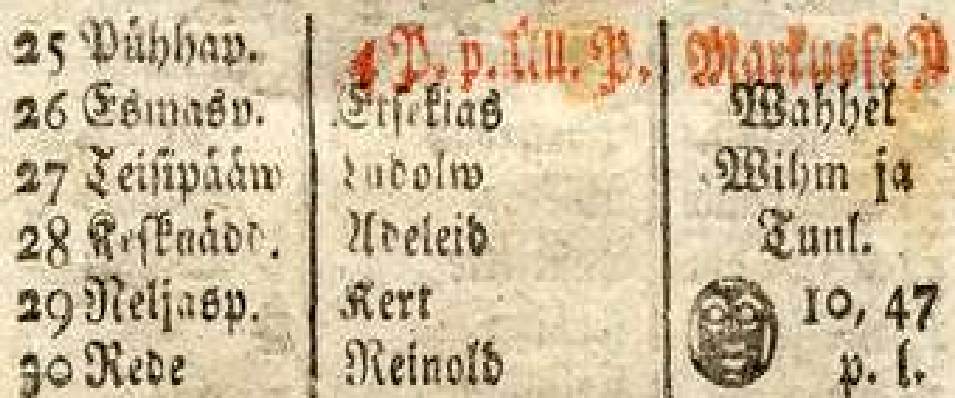 25 Pühhap. 4 P. p. Lill. P. Markusse P
26 Esmasp. Etsekias Wahhel
27 Teisipääw Ludolw Wihm ja
28 Kesknädd. Adeleid Tuul.
29 Neljasp. Kert 10, 47
30 Rede Reinold p. l.